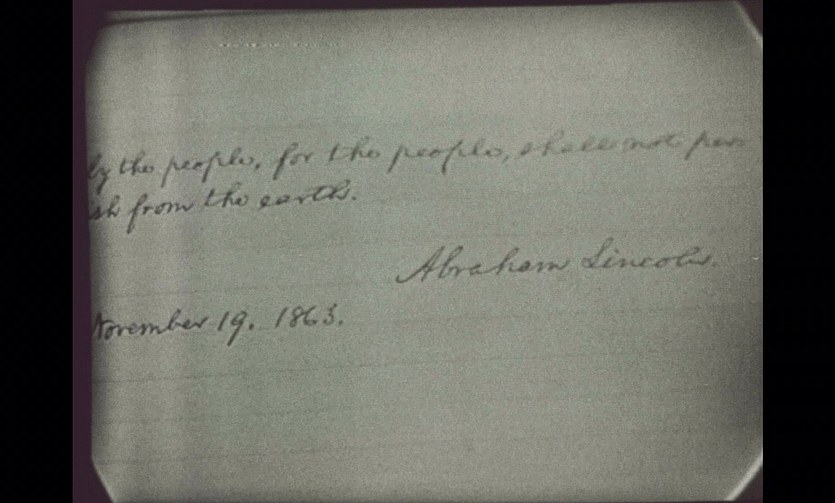 by the people, for the people, shall not per
ish from the earth.
Abraham Lincoln.
November 19. 1863.